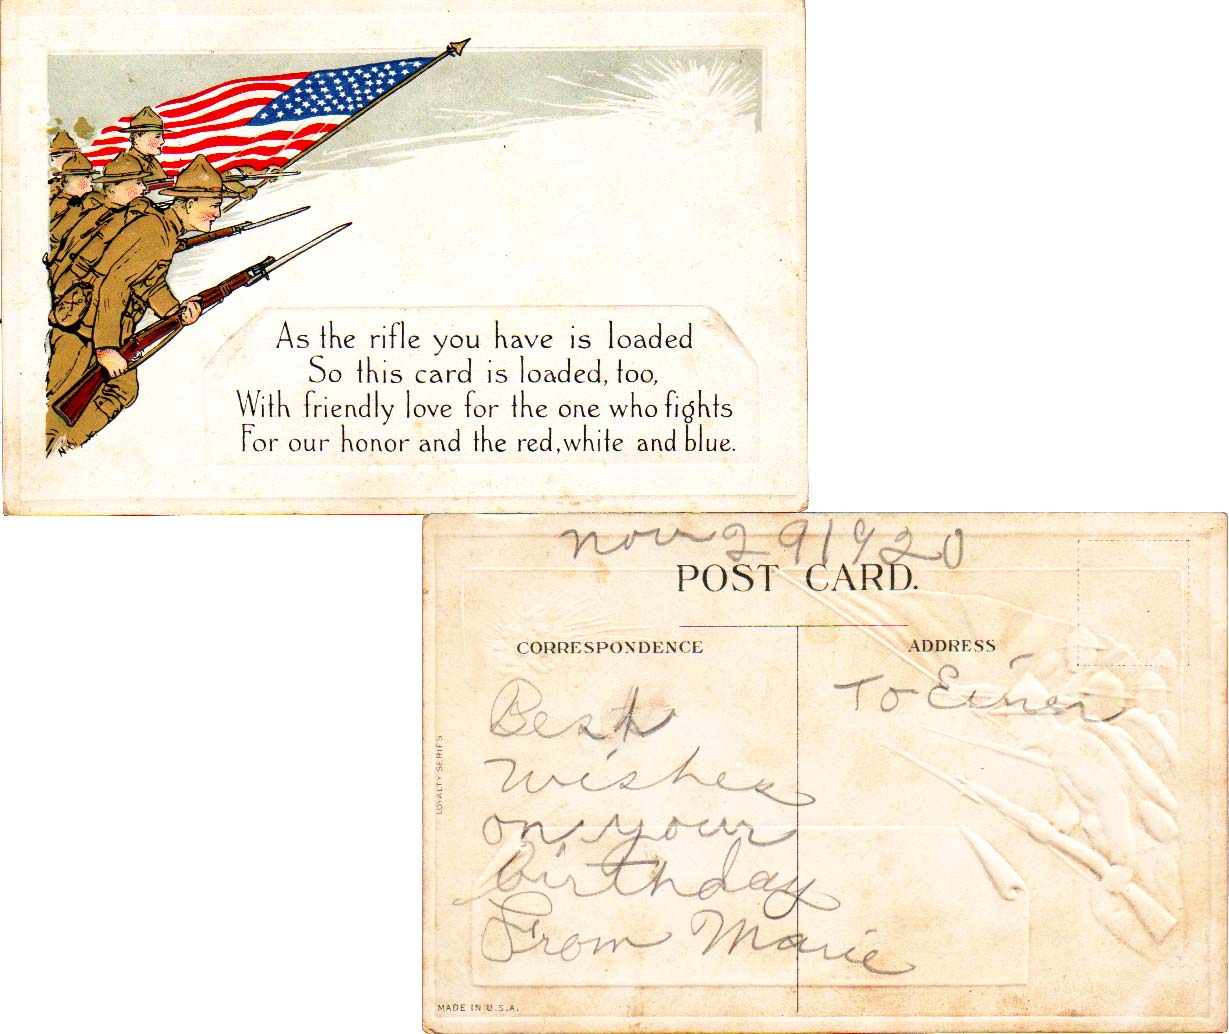 As the rifle you have is loaded
So this card is loaded, too,
With friendly love for the one who fights
For our honor and the red, white and blue.
Nov 29 1920
POST CARD.
CORRESPONDENCE
ADDRESS
To Einer
Best
wishes
on your
birthday
From Marie
LOYALTY SERIES
MADE IN U.S.A.